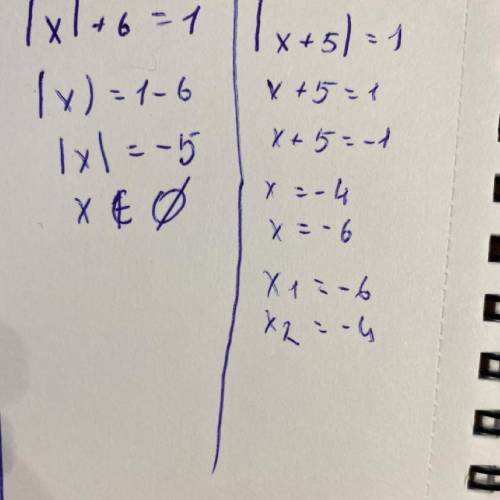 |x| + 6 = 1
|x) = 1 - 6
|x| = -5
x ∈ ∅
|x + 5| = 1
x + 5 = 1
x + 5 = -1
x = -4
x = -6
x1 = -6
x2 = -4